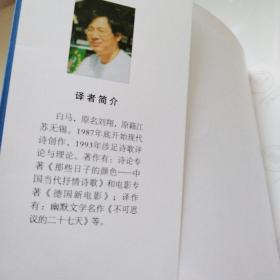 译者简介
白马，原名刘翔，原籍江
苏无锡。1987年底开始现代
诗创作，1993年涉足诗歌评
论与理论。著作有：诗论专
著《那些日子的颜色——中
国当代抒情诗歌》和电影专
著《德国新电影》；译作
有：幽默文学名作《不可思
议的二十七天》等。